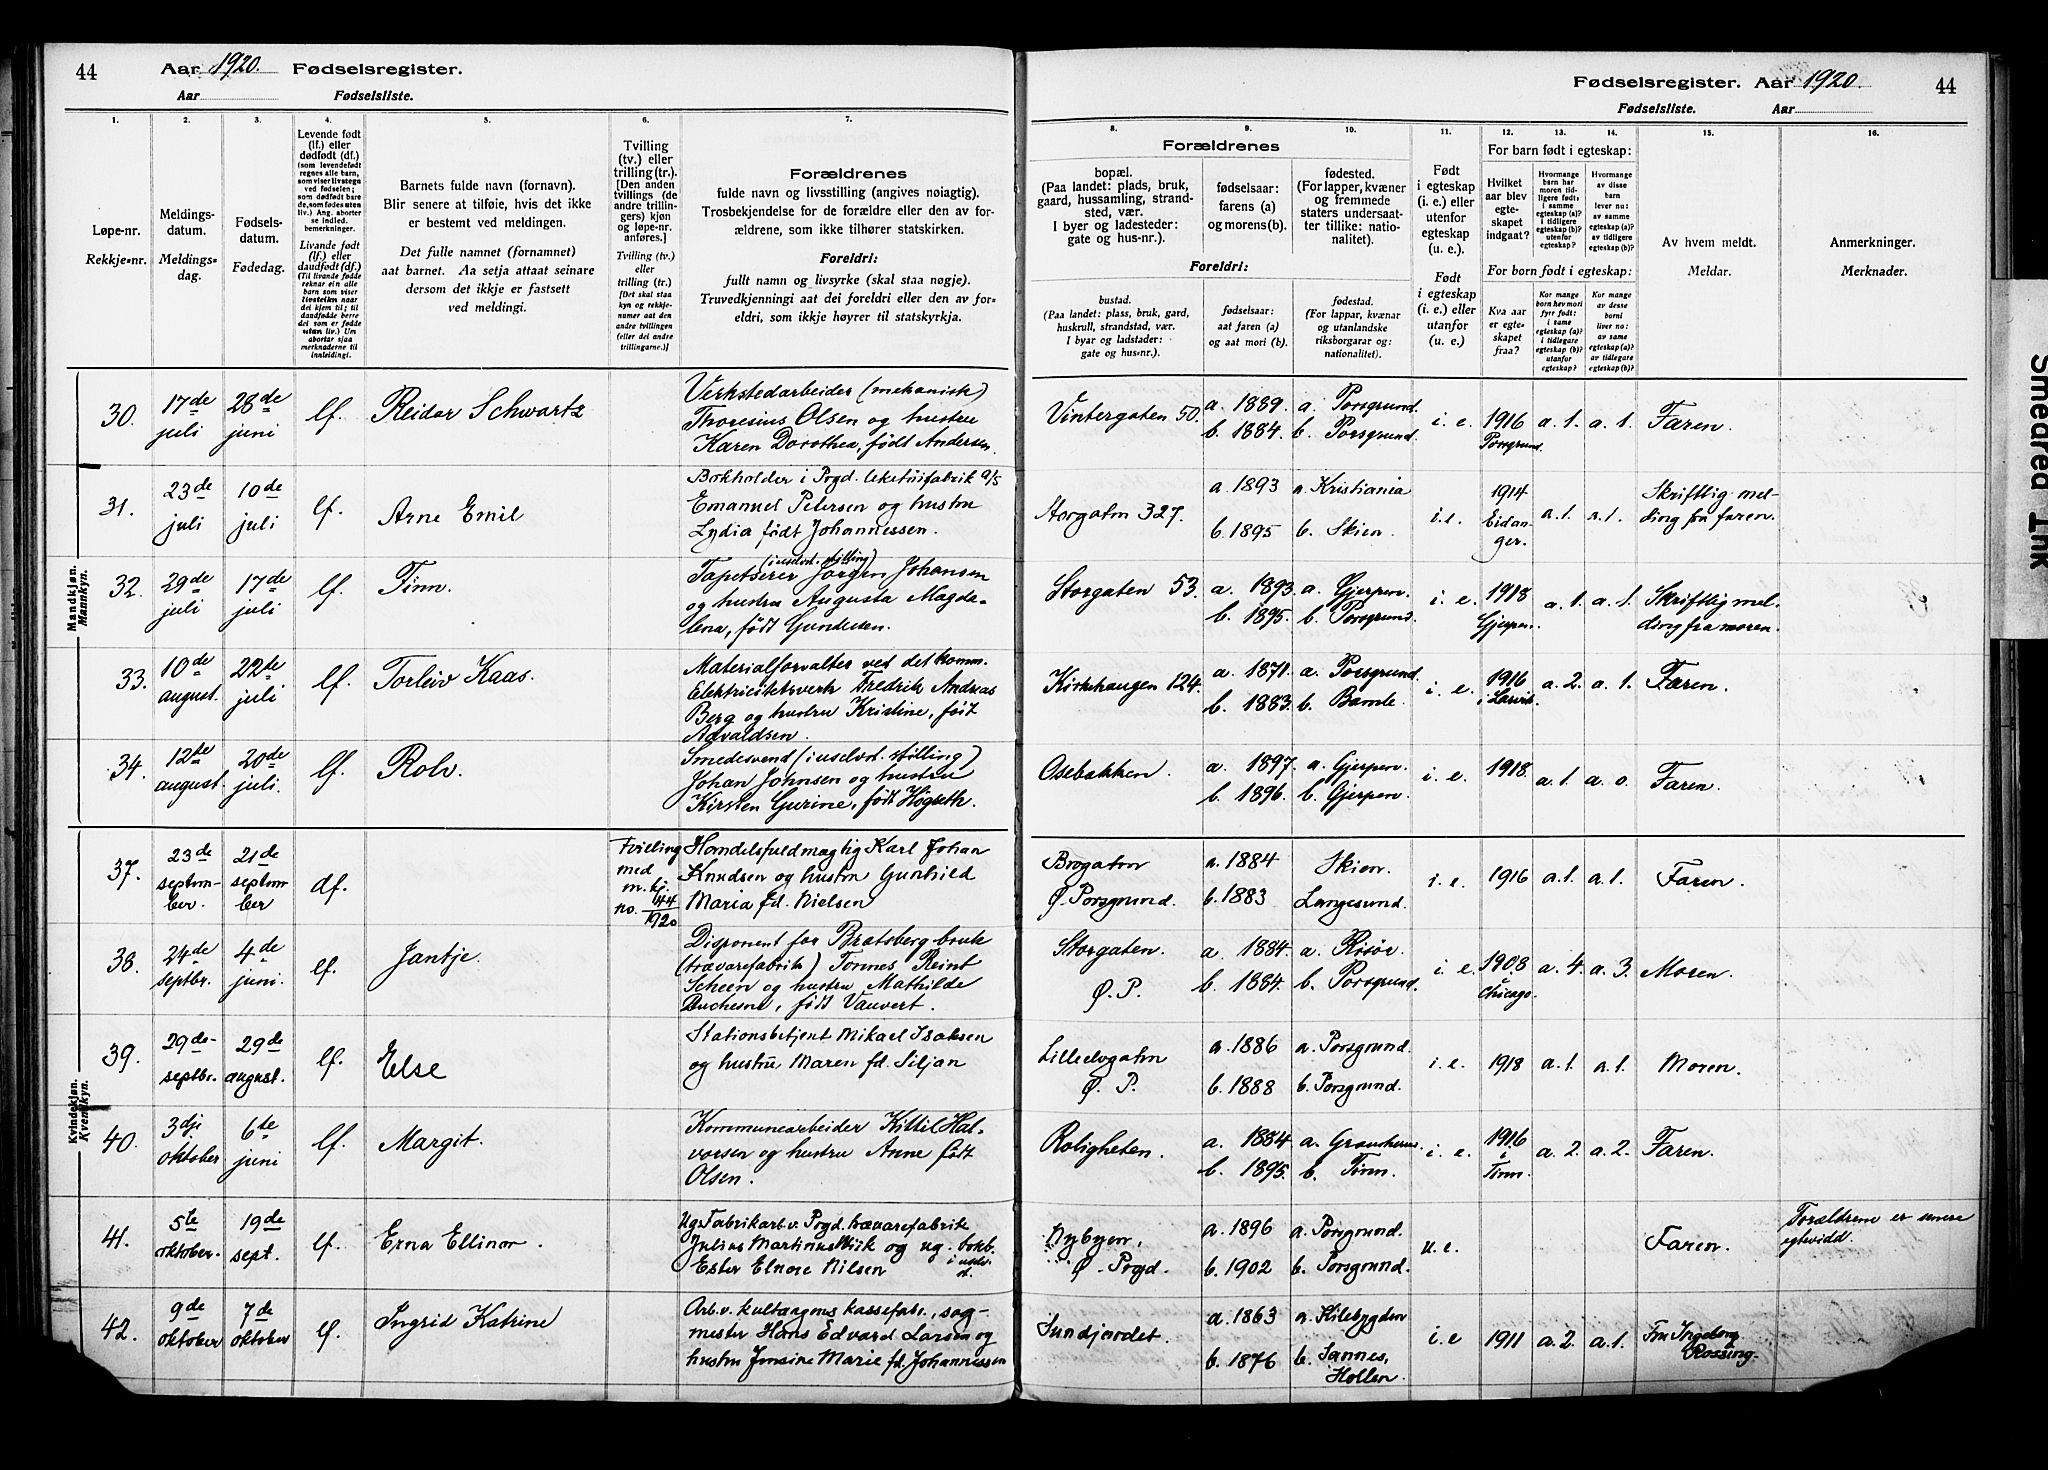 44 Aar 1920. Fødselsregister.
Aar Fødselsliste.
Fødselsregister. Aar 1920. 44
Fødselsliste. Aar
1. 2. 3. 4. 5. 6. 7.
Løpe-nr.
Rekkje-nr.
Meldings-
datum.
Meldings-
dag.
Fødsels-
datum.
Fødedag.
Levende født
(lf.) eller
dødfødt (df.)
(som levendefødt
regnes alle barn,
som viser livstegn
ved fødselen;
som dødfødt barn
de, som fødes uten
liv.) Ang. aborter
se indled.
bemerkninger.
Livande født
(lf.) eller
daudfødt (df.)
(Til livande fødde
reknar ein alle
born som viser
livsteikn naar
dei kjem til; til
daudfødde berre
dei som er fødde
utan liv.) Um
abortar sjaa
merknaderne til
innleidingi.
Barnets fulde navn (fornavn).
Blir senere at tilføie, hvis det ikke
er bestemt ved meldingen.
Det fulle namnet (fornamnet)
aat barnet. Aa setja attaat seinare
dersom det ikkje er fastsett
ved meldingi.
Tvilling
(tv.) eller
trilling (tr.).
[Den anden
tvillings (de
andre trillin-
gers) kjøn
og løpe-nr.
anføres.]
Tvilling (tv.)
eller
trilling (tr.)
[Det skal staa
kyn og rekkje-
numer aat den
andre tvillingen
(eller dei andre
trillingarne.)]
Forældrenes
fulde navn og livsstilling (angives nøiagtig).
Trosbekjendelse for de forældre eller den av for-
ældrene, som ikke tilhører statskirken.
Foreldri:
fullt namn og livsyrke (skal staa nøgje).
Truvedkjenningi aat dei foreldri eller den av for-
eldri, som ikkje høyrer til statskyrkja.
8. 9. 10. 11. 12. 13. 14. 15. 16.
Forældrenes
bopæl.
(Paa landet: plads, bruk,
gaard, hussamling, strand-
sted, vær.
I byer og ladesteder:
gate og hus-nr.).
fødselsaar:
farens (a)
og morens (b).
fødested.
(For lapper, kvæner
og fremmede
staters undersaat-
ter tillike: natio-
nalitet).
Foreldri:
bustad.
(Paa landet: plass, bruk, gard,
huskrull, strandstad, vær.
I byar og ladstader:
gate og hus-nr.).
fødselsaar:
aat faren (a)
og aat mori (b).
fødestad.
(For lappar, kvænar
og utanlandske
riksborgarar og:
nationalitet).
Født
i egteskap
(i. e.) eller
utenfor
egteskap
(u. e.).
Født
i egteskap
(i. e.) eller
utanfor
(u. e.).
For barn født i egteskap:
Hvilket
aar blev
egte-
skapet
indgaat?
Hvormange
barn har
moren tid-
ligere født:
i samme
egteskap (a)?
i tidligere
egteskap (b)?
utenfor
egteskap?
Hvormange
av disse
barn
lever nu:
av samme
egteskap (a)?
av tidligere
egteskap (b)?
For born født i egteskap:
Kva aar
er egte-
skapet
fraa?
Kor mange
born hev mori
fyrr født:
i same
egteskap (a)?
i tidlegare
egteskap (b)?
utanfor
egteskap?
Kor mange
av desse
borni
liver no:
av same
egteskap (a)?
av tidlegare
egteskap (b)?
Av hvem meldt.
Meldar.
Anmerkninger.
Merknader.
Mandkjøn.
Mannkyn.
30. 17de juli 28de juni lf. Reidar Schwartz
Verkstedarbeider (mekanisk)
Thoresius Olsen og hustru
Karen Dorothea, født Andersen.
Vintergaten 50. a. 1889. a. Porsgrund. i. e. 1916 a. 1. a. 1. Faren.
b. 1884. b. Porsgrund. Porsgrund.
31. 23de juli 10de juli lf. Arne Emil
Bokholder i Prgd. leketøifabrik a/s
Emanuel Petersen og hustru
Lydia født Johannessen.
Storgatn 327. a. 1893 a. Kristiania i. e. 1914 a. 1. a. 1. Skriftlig mel-
b. 1895 b. Skien. Eidan-
ger. ding fra faren.
32. 29de juli 17de juli lf. Finn.
(i uselvst. stilling)
Tapetserer Jørgen Johansen
og hustru Augusta Magda-
lena, født Gundersen.
Storgaten 53. a. 1893. a. Gjerpen. i. e. 1918 a. 1. a. 1. Skriftlig mel-
b. 1895. b. Porsgrund. Gjerpen. ding fra moren.
33. 10de august. 22de juli lf. Torleiv Kaas.
Materialforvalter ved det komm.
Elektricitetsverk Fredrik Andreas
Berg og hustru Kristine, født
Advaldsen.
Kirkehaugen 124. a. 1871. a. Porsgrund. i. e. 1916 a. 2. a. 1. Faren.
b. 1883. b. Bamle. i Larvik.
34. 12te august. 20de juli. lf. Rolv.
Smedesvend (i uselvst. stilling)
Johan Johnsen og hustru
Kirsten Gurine, født Høgseth.
Osebakken. a. 1897. a. Gjerpen. i. e. 1918. a. 1. a. 0. Faren.
b. 1896. b. Gjerpen.
Kvindekjøn.
Kvendkyn.
37. 23de septem-
ber. 21de septem-
ber df.
Tvilling
med
m. kj.
no. 44
1920
Handelsfuldmægtig Karl Johan
Knudsen og hustru Gunhild
Maria fd. Nielsen
Brogatn a. 1884 Skien. i. e. 1916 a. 1. a. 1. Faren.
Ø. Porsgrund. b. 1883 Langesund.
38. 24de septbr. 4de juni. lf. Jantje.
Disponent for Bratsberg bruk
(trævarefabrik) Tonnes Reint
Scheen og hustru Mathilde
Duchesne, født Vauvert.
Storgaten. a. 1884. a. Risør. i. e. 1908 a. 4. a. 3. Moren.
Ø. P. b. 1884. b. Porsgrund. Chicago.
39. 29de septbr. 29de august. lf. Else
Stationsbetjent Mikael Isaksen
og hustru Maren fd. Siljan
Lilleelvgatn a. 1886 a. Porsgrund. i. e. 1918 a. 1. a. 1. Moren.
Ø. P. b. 1888 b. Porsgrund.
40. 3dje oktober 6te juni lf. Margit.
Kommunearbeider Kittil Hal-
vorsen og hustru Anne født
Olsen.
Roligheten. a. 1884. a. i. e. 1916 a. 2. a. 2. Faren.
b. 1895. b. Tinn. i
Tinn.
41. 5te oktober. 19de sept. lf. Erna Ellinor.
Ug. Fabrikarb. v. Prgd. trævarefabrik
Julius Martinius Wiik og ug. bokb.
Ester Elnore Nilsen i uselv.
st.
Nybyen, a. 1896 a. Porsgrund. u. e. Faren. Forældrene er senere
Ø. Prgd. b. 1902 b. Porsgrund. egtevidd.
42. 9de oktober 7de oktober lf. Ingrid Katrine
Arb. v. kassefabr., sag-
mester Hans Edvard Larsen og
hustru Jensine Marie fd. Johannessen
Sundjordet. a. 1863 a. Kilebygden i. e 1911 a. 2. a. 1. Fru Ingeborg
b. 1876 b. Sannes,
Hollen. Rossing.
Smedred Ink